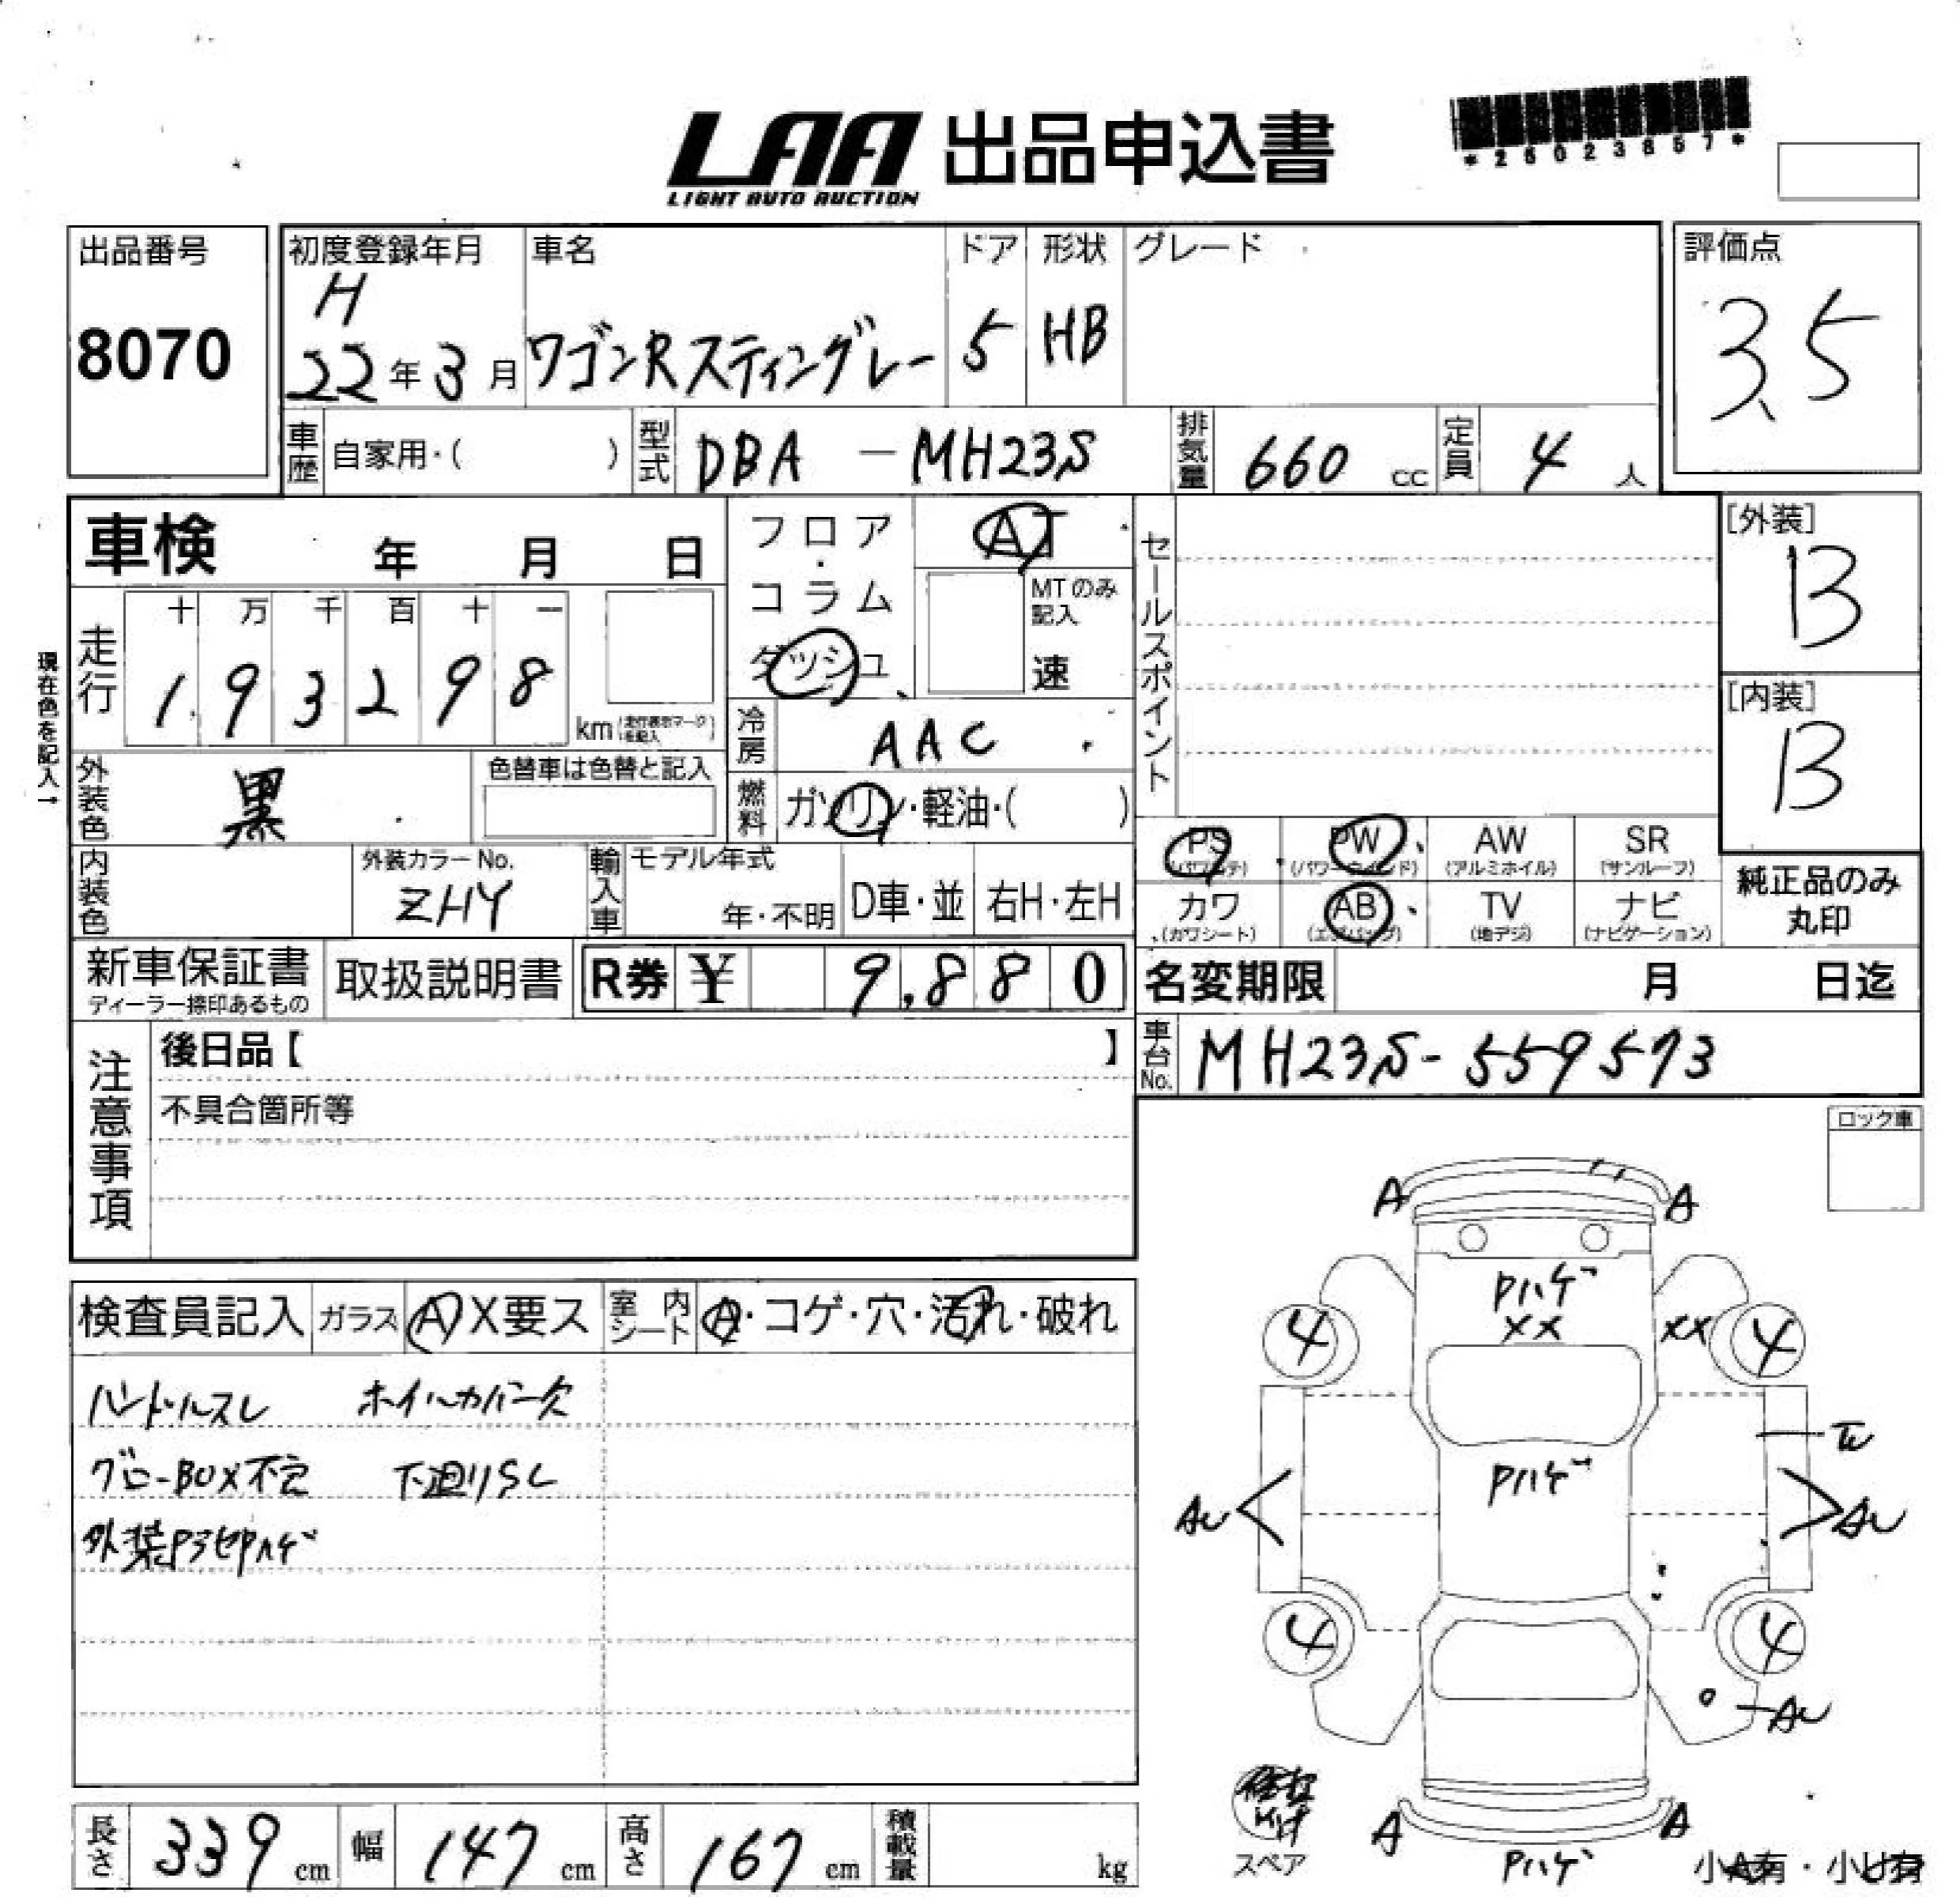 LAA 出品申込書
LIGHT AUTO AUCTION
*26023857*
出品番号
8070
初度登録年月
H
22年3月
車名
ワゴンRスティングレー
ドア
5
形状
HB
グレード
評価点
3.5
車歴 自家用・( )
型式 DBA - MH23S
排気量 660 cc
定員 4 人
車検 年 月 日
フロア・コラム
ダッシュ
AT
MTのみ記入
速
セールスポイント
[外装]
B
[内装]
B
現在色を記入→
走行
十 万 千 百 十 一
1 9 3 2 9 8
km (走行表示マークを記入)
冷房 AAC
外装色 黒
色替車は色替と記入
燃料 ガソリン・軽油・( )
PS (パワステ)
PW (パワーウインド)
AW (アルミホイル)
SR (サンルーフ)
カワ (カワシート)
AB (エアバッグ)
TV (地デジ)
ナビ (ナビゲーション)
純正品のみ丸印
内装色
外装カラーNo.
ZHY
輸入車
モデル年式
年・不明
D車・並
右H・左H
新車保証書
ディーラー捺印あるもの
取扱説明書
R券 ¥ 9,880
名変期限 月 日迄
注意事項
後日品【 】
不具合箇所等
車台No. MH23S-559573
ロック車
検査員記入
ガラス A X要ス
室内シート A・コゲ・穴・汚れ・破れ
ハンドルスレ ホイルカバー欠
グローBOX不良 下廻りSL
外装Pハゲ
A A
Pハゲ
XX XX
4 4
Pハゲ
AU AU
4 4
AU
A A
Pハゲ
スペア
小A有・小U有
長さ 339 cm
幅 147 cm
高さ 167 cm
積載量 kg